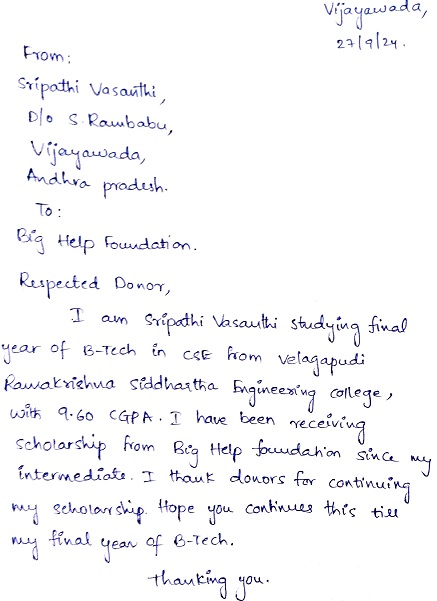 Vijayawada,
27/9/24.
From:
Sripathi Vasanthi,
D/o S. Rambabu,
Vijayawada,
Andhra pradesh.
To:
Big Help Foundation.
Respected Donor,
I am Sripathi Vasanthi studying final
year of B-Tech in CSE from Velagapudi
Ramakrishna Siddhartha Engineering college,
with 9.60 CGPA. I have been receiving
scholarship from Big Help foundation since my
intermediate. I thank donors for continuing
my scholarship. Hope you continues this till
my final year of B-Tech.
Thanking you.